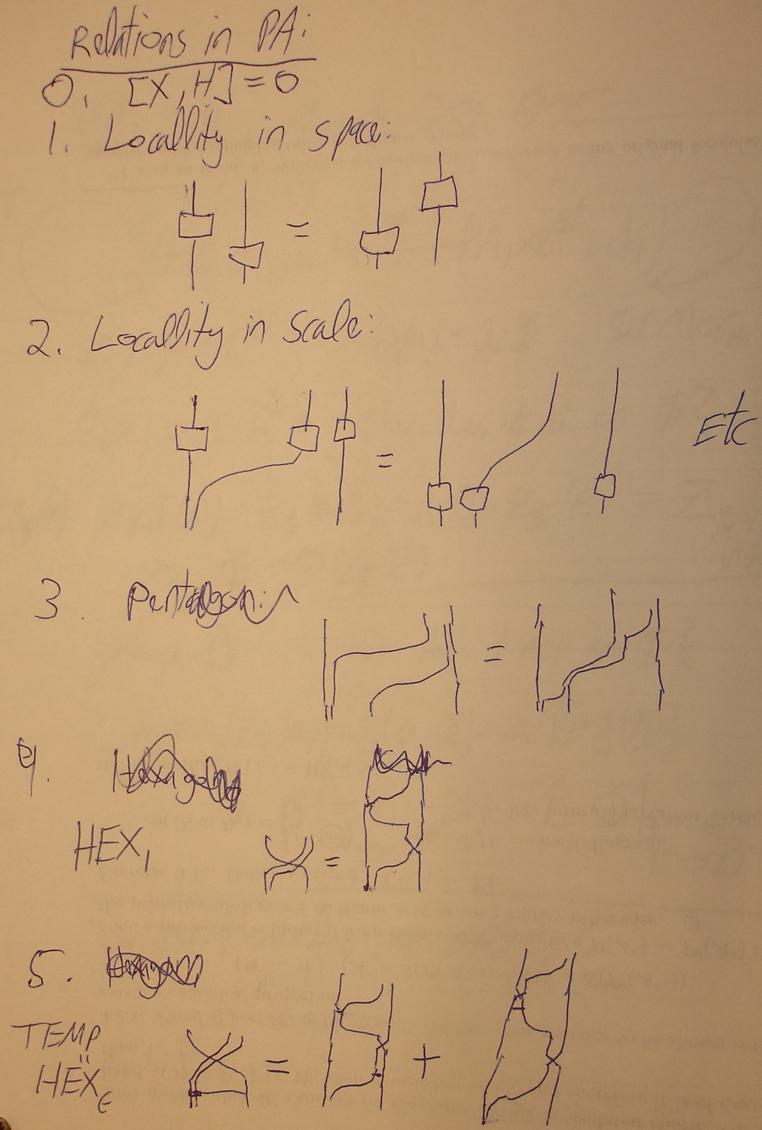 Relations in PA:
0. [X, H] = 0
1. Locallity in space:
=
2. Locallity in scale:
= Etc
3. Pentagon:
=
4.
HEX₁ =
5.
TEMP
HEX = +